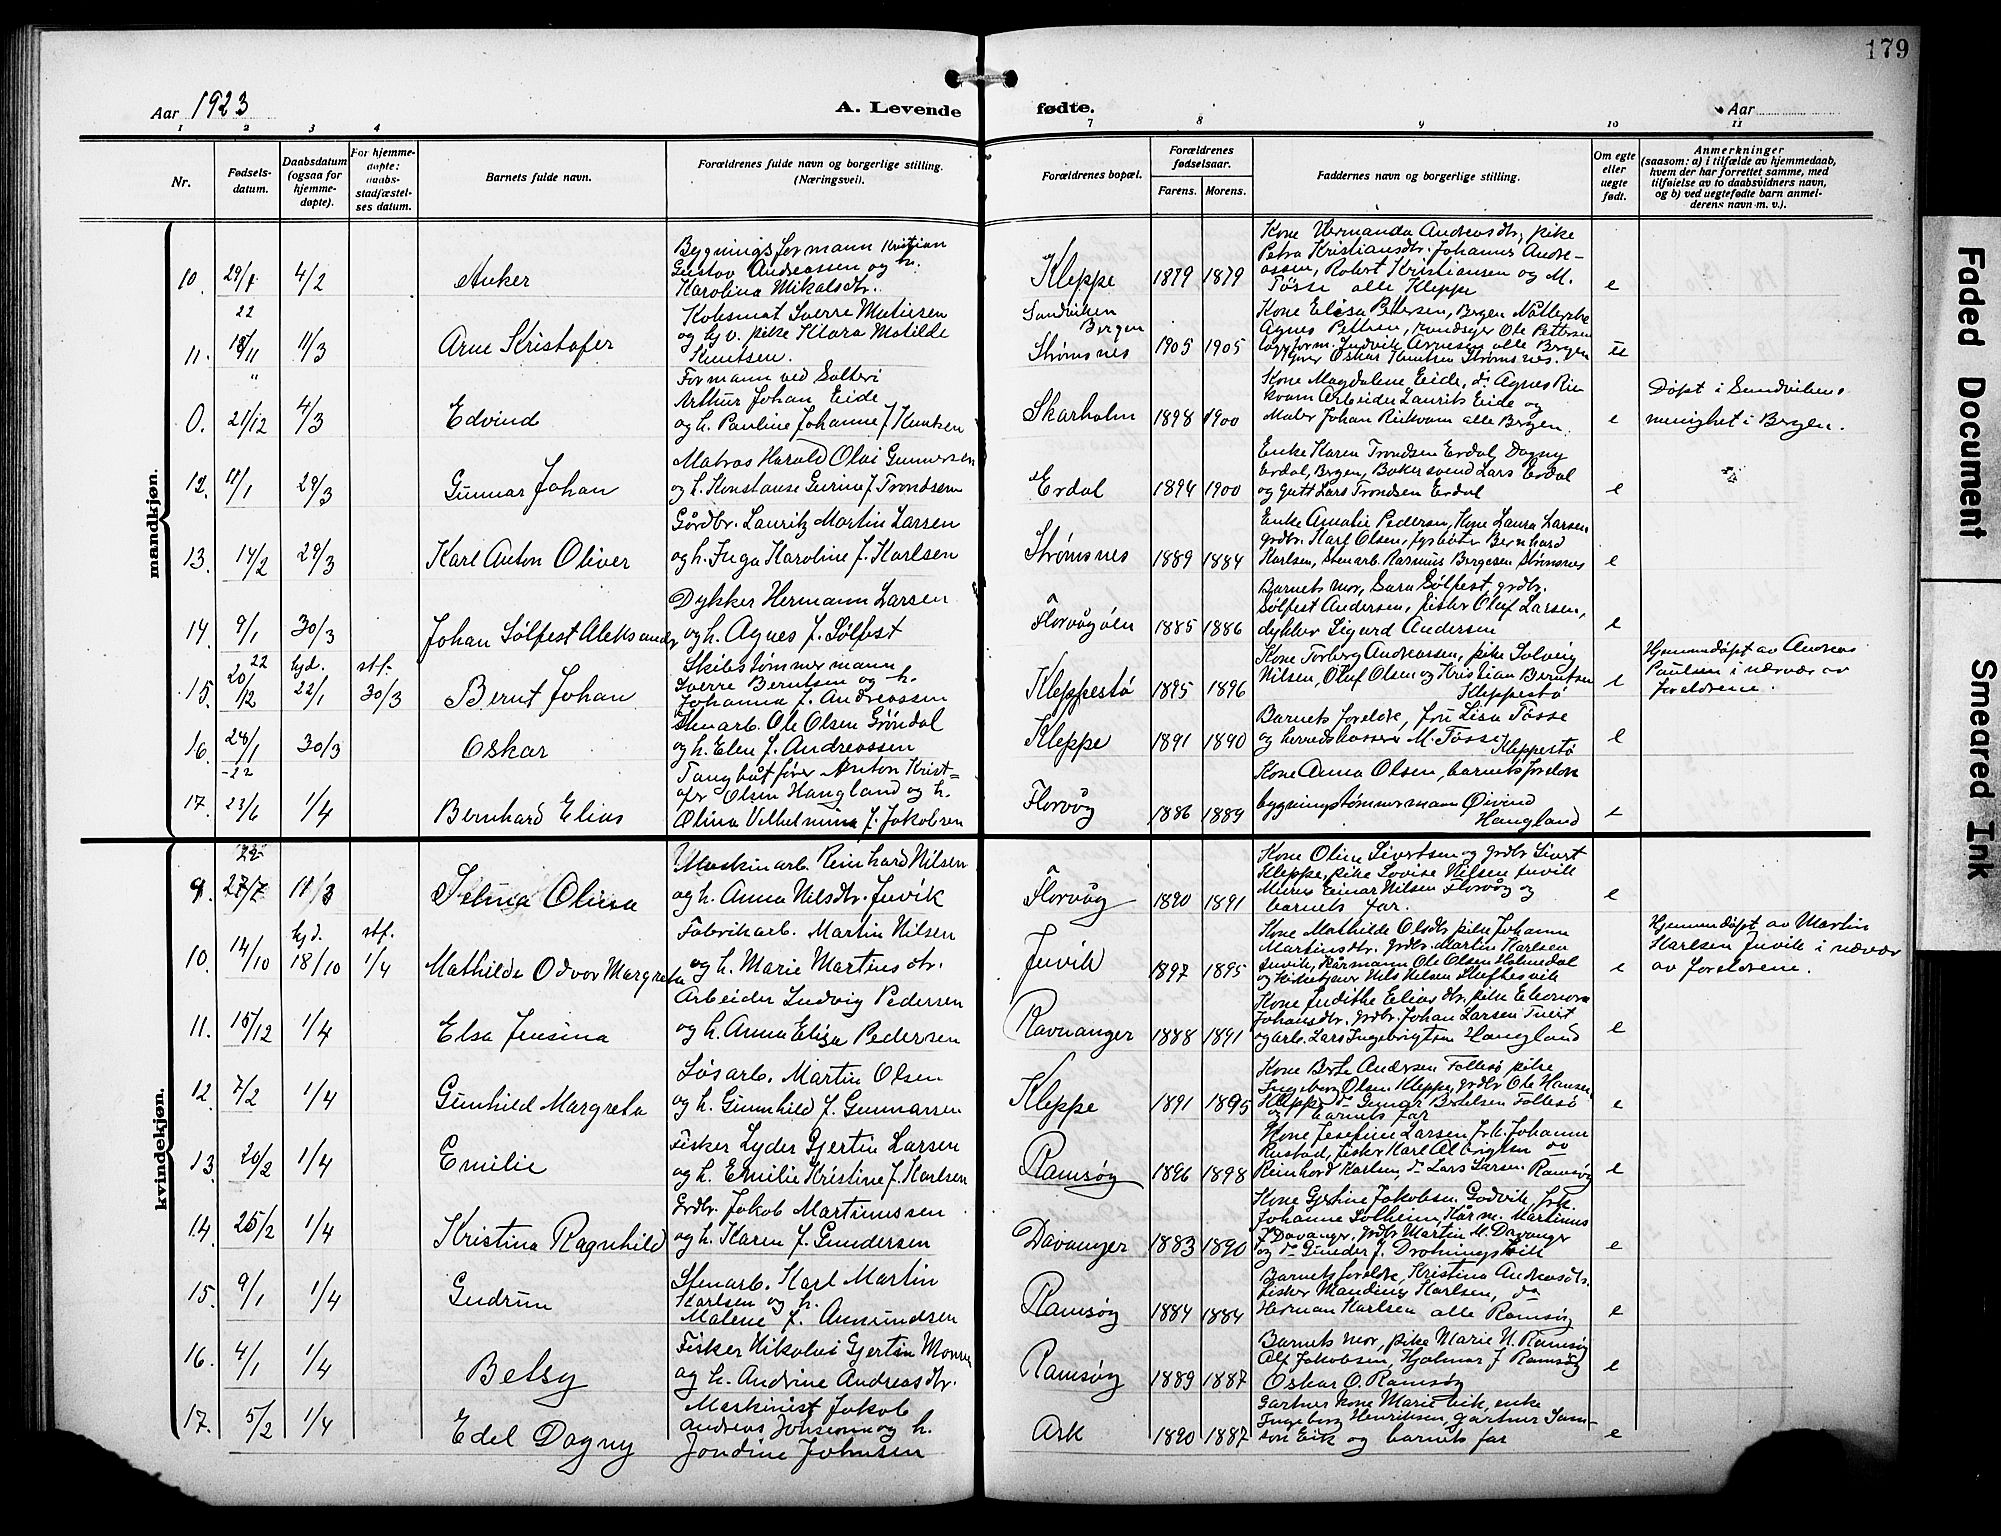 179
Aar 1923
A. Levende
fødte.
Aar
1 2 3 4 7 8 9 10 11
Nr.
Fødsels-
datum.
Daabsdatum
(ogsaa for
hjemme-
døpte).
For hjemme-
døpte:
daabs-
stadfæstel-
ses datum.
Barnets fulde navn.
Forældrenes fulde navn og borgerlige stilling.
(Næringsvei).
Forældrenes bopæl.
Forældrenes
fødselsaar.
Farens. Morens.
Faddernes navn og borgerlige stilling.
Om egte
eller
uegte
født.
Anmerkninger
(saasom: a) i tilfælde av hjemmedaab,
hvem der har forrettet samme, med
tilføielse av to daabsvidners navn,
og b) ved uegtefødte barn anmel-
derens navn m. v.).
mandkjøn.
10. 29/1 4/2 Anker
Bygningsformann Kristian
Gustav Andreassen og h.
Karolina Mikalsdtr.
Kleppe 1879 1879
Kone Vernanda Andreasdtr, pike
Petra Kristiansdtr. Johannes Andre-
assen, Robert Kristiansen og M.
Tøsse alle Kleppe
e
22
11. 18/11 11/3 Arne Kristofer
Koksmat Sverre Matiesen
og hj v. pike Klara Matilde
Knutsen.
Sandviken
Bergen
Strømsnes 1905 1905
Kone Elisa Pettersen, Bergen
Agnes Ole Pettersen
Ludvik Arnesen alle Bergen
Oskar Knutsen Strømsnes.
u
"
0. 21/12 4/3 Edvind
Formann ved Salteri
Arthur Johan Eide
og h. Pauline Johanne f. Knutsen
Skarholm 1898 1900
Kone Magdalene Eide, do Agnes Rik-
kvam Arbeider Laurits Eide og
Maler Johan Rikvam alle Bergen.
e
Døpt i Sandvikens
menighet i Bergen.
12. 11/1 29/3 Gunnar Johan
Matros Harald Olai Gunnersen
og h. Konstanse Gurine f. Trondsen
Erdal 1894 1900
Enke Karen Trondsen Erdal Dagny
Erdal, Bergen, Bakersvend Lars Erdal
og Gutt Lars Trondsen Erdal
e
13. 14/2 29/3 Karl Anton Oliver
Gårdbr. Lauritz Martin Larsen
og h. Inga Karoline f. Karlsen
Strømsnes 1889 1884
Enke Amalie Pedersen, Kone Laura Larsen
grdbr. Karl Olsen, fyrbøter Bernhard
Karlsen, Stenarb. Rasmus Bergesen Strømsnes
e
14. 9/1 30/3 Johan Sølfest Aleksander
Dykker Hermann Larsen
og h. Agnes f. Sølfest
Florvågøen 1885 1886
Barnets mor, Sara Sølfest, grdbr.
Sølfest Andersen, fisker Oluf Larsen,
dykker Sigurd Andersen
e
22 hjd. stf.
15. 20/12 22/1 30/3 Bernt Johan
Skibstømmermann
Sverre Berntsen og h.
Johanna f. Andreassen
Kleppestø 1895 1896
Kone Torberg Andreassen, pike Solveig
Nilsen, Oluf Olsen og Kristian Berntsen
Kleppestø
e
Hjemmedøpt av Andreas
Paulsen i nærvær av
foreldrene.
16. 28/1 30/3 Oskar
Stenarb. Ole Olsen Grøndal
og h. Elen f. Andreassen
Kleppe 1891 1890
Barnets foreldre, fru Lisa Tøsse
og herredskasserer M. Tøsse, Kleppestø
e
-22
17. 23/6 1/4 Bernhard Elias
Tangbåtfører Anton Krist=
ofer Olsen Haugland og h.
Olina Vilhelmina f. Jakobsen
Florvåg 1886 1889
Kone Anna Olsen, barnets foreldre
bygningstømmermann Øivind
Haugland
e
kvindekjøn.
22
9. 27/7 11/3 Selma Olina
Maskinarb. Reinhard Nilsen
og h. Anna Nilsdtr. Juvik
Florvåg 1890 1891
Kone Oline Sivertsen og grdbr Sivert
Kleppe, pike Lovise Nilsen Juvik
Murer Einar Nilsen Florvåg og
barnets far.
e
hjd. stf.
10. 14/10 18/10 1/4 Mathilde Odvor Margreta
Fabrikarb. Martin Nilsen
og h. Marie Martinsdtr.
Juvik 1897 1895
Kone Mathilde Olsdtr pike Johanne
Martinsdtr. grdbr. Martin Karlsen
Juvik, Kårmann Ole Olsen Holmedal
og Nils Nilsen
e
Hjemmedøpt av Martin
Karlsen Juvik i nærvær
av foreldrene.
11. 15/12 1/4 Elsa Jensina
Arbeider Ludvig Pedersen
og h. Anna Elisa Pedersen
Ravnanger 1888 1891
Kone Judithe Eliasdtr, pike Eleonora
Johansdtr. grdbr. Johan Larsen Tveit
og arb. Lars Ingebrigtsen Haugland
e
12. 7/2 1/4 Gunhild Margreta
Løsarb. Martin Olsen
og h. Gunnhild f. Gunnarsen
Kleppe 1891 1895
Kone Berte Andersen Follesø pike
Ingeborg Olsen Kleppe, grdbr Ole Hansen
Kleppe, do Gunnar Bertelsen Follesø
og barnets far
e
13. 20/2 1/4 Emilie
Fisker Lyder Gjertin Larsen
og h. Emilie Kristine f. Karlsen
Ramsøy 1896 1898
Kone Josefine Larsen frk. Johanne
Rustad, fisker Karl Albrigtsen do
Reinhard Karlsen, do Lars Larsen Ramsøy
e
14. 25/2 1/4 Kristina Ragnhild
Grdbr. Jakob Martinussen
og h. Karen f. Gundersen
Davanger 1883 1890
Kone Gjertine Jakobsen Godvik, frk.
Johanne Solheim, Kårm. Martinus
J Davanger, grdbr Martin M. Davanger
og do Gunder J. Drotningsvik
e
15. 9/1 1/4 Gudrun
Stenarb. Karl Martin
Karlsen og h.
Malene f. Amundsen
Ramsøy 1884 1884
Barnets foreldre, Kristina Andreasdtr.
fisker Mandius Karlsen, do
Herman Karlsen alle Ramsøy
e
16. 4/1 1/4 Betsy
Fisker Nikolai Gjertin Monsen
og h. Andrine Andreasdtr.
Ramsøy 1889 1887
Barnets mor, pike Marie N. Ramsøy
Alf Jakobsen, Hjalmar J Ramsøy
Oskar O. Ramsøy
e
17. 5/2 1/4 Edel Dagny
Maskinist Jakob
Andreas Johnsen og h.
Jondine Johnsen
Ask 1890 1887
Gartner kone Marie Eik, enke
Ingeborg Henriksen, gartner Sam-
son Eik og barnets far
e
Faded Document
Smeared Ink